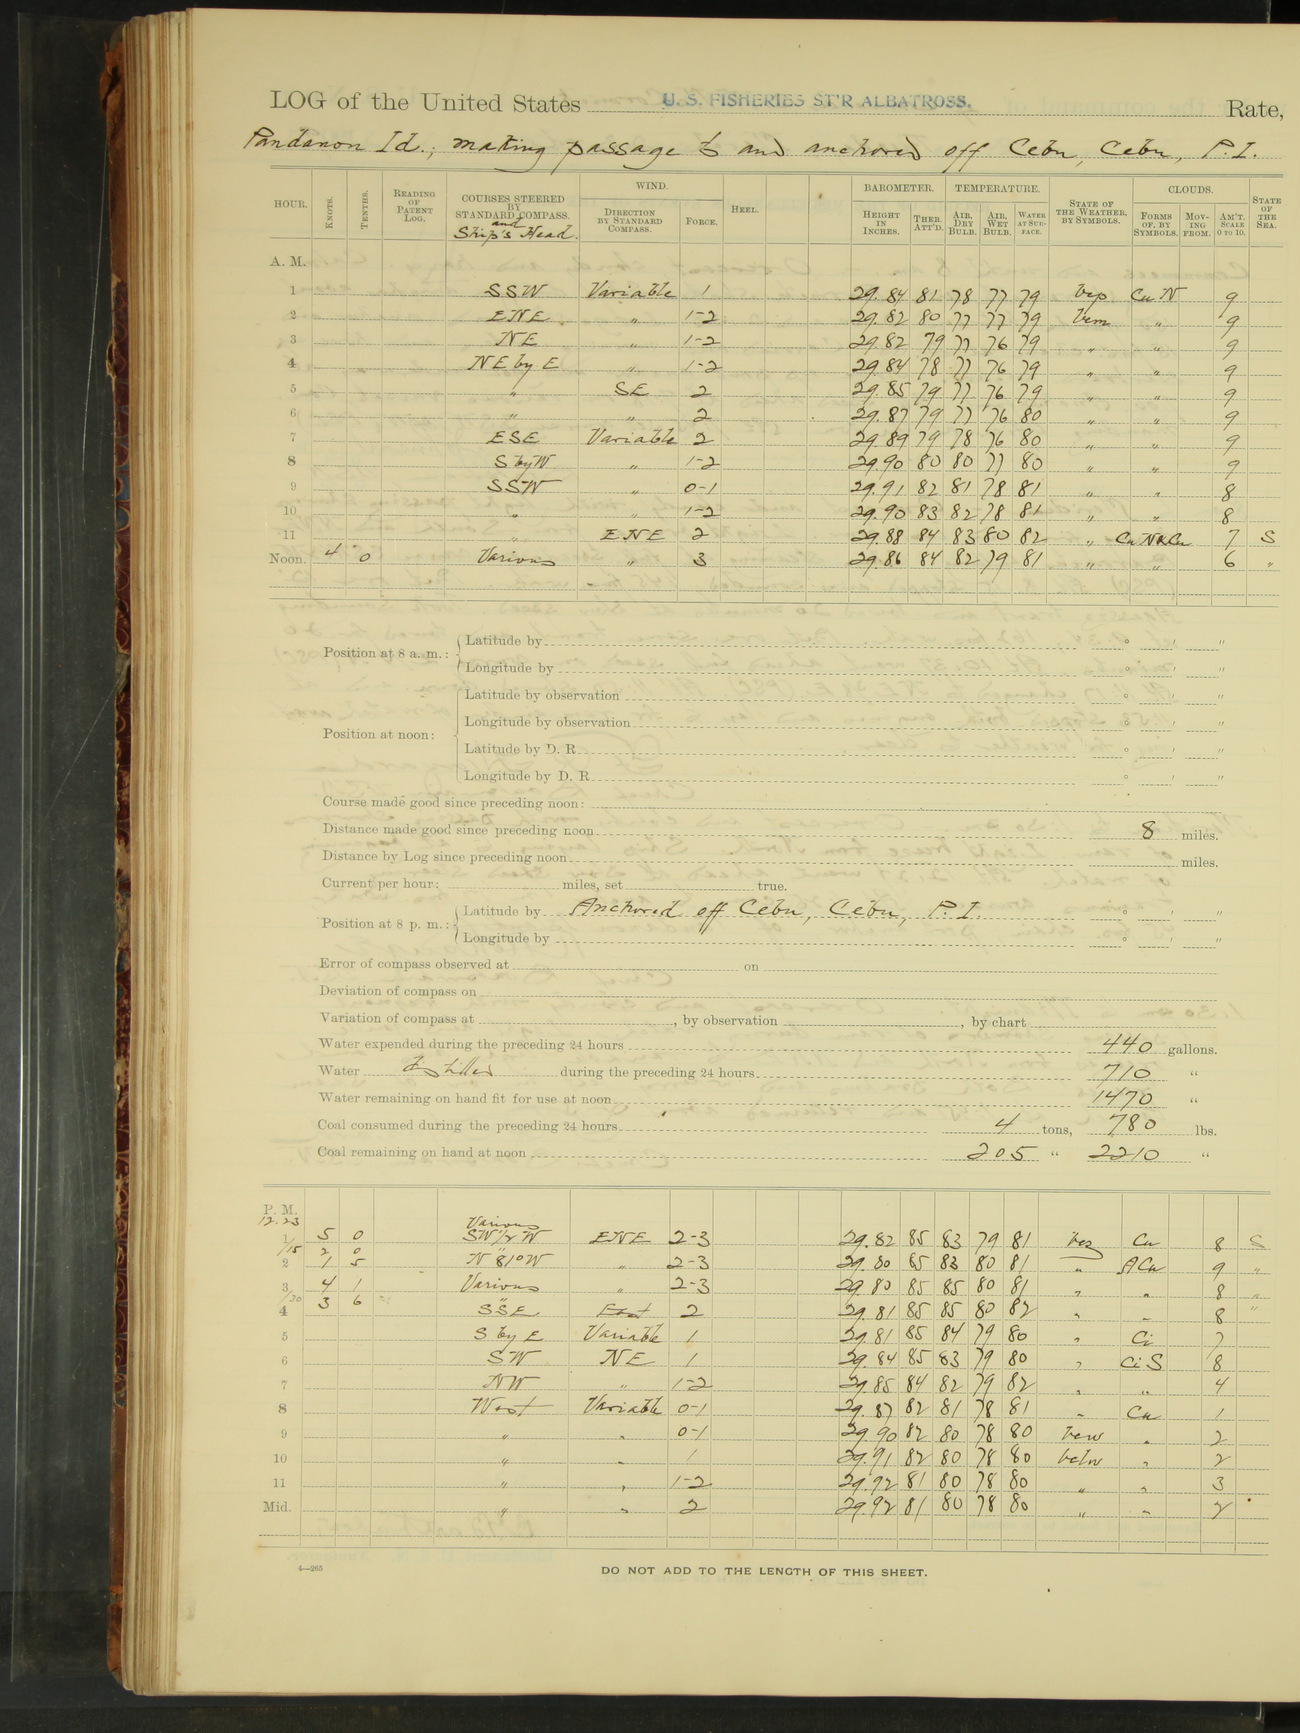 LOG of the United States U. S. FISHERIES ST'R ALBATROSS. Rate,
Pandanon Id.; making passage to and anchored off Cebu, Cebu, P. I.
HOUR. KNOTS. TENTHS. READING OF PATENT LOG. COURSES STEERED BY STANDARD COMPASS. and Ship's Head. WIND. DIRECTION BY STANDARD COMPASS. FORCE. HEEL. BAROMETER. HEIGHT IN INCHES. THER. ATT'D. TEMPERATURE. AIR, DRY BULB. AIR, WET BULB. WATER AT SURFACE. STATE OF THE WEATHER, BY SYMBOLS. CLOUDS. FORMS OF, BY SYMBOLS. MOVING FROM. AM'T. SCALE 0 TO 10. STATE OF THE SEA.
A. M.
1 SSW Variable 1 29.84 81 78 77 79 bcp Cu N 9
2 ENE " 1-2 29.82 80 77 77 79 bcm " 9
3 NE " 1-2 29.82 79 77 76 79 " " 9
4 NE by E " 1-2 29.84 78 77 76 79 " " 9
5 " SE 2 29.85 79 77 76 79 " " 9
6 " " 2 29.87 79 77 76 80 " " 9
7 ESE Variable 2 29.89 79 78 76 80 " " 9
8 S by W " 1-2 29.90 80 80 77 80 " " 9
9 SSW " 0-1 29.91 82 81 78 81 " " 8
10 " " 1-2 29.90 83 82 78 81 " " 8
11 " ENE 2 29.88 84 83 80 82 " Cu N & Cu 7 S
Noon. 4 0 Various " 3 29.86 84 82 79 81 " " 6 "
Position at 8 a. m.: Latitude by ° ' "
Longitude by ° ' "
Position at noon: Latitude by observation ° ' "
Longitude by observation ° ' "
Latitude by D. R. ° ' "
Longitude by D. R. ° ' "
Course made good since preceding noon:
Distance made good since preceding noon 8 miles.
Distance by Log since preceding noon miles.
Current per hour: miles, set true.
Position at 8 p. m.: Latitude by Anchored off Cebu, Cebu, P. I. ° ' "
Longitude by ° ' "
Error of compass observed at on
Deviation of compass on
Variation of compass at , by observation , by chart
Water expended during the preceding 24 hours 440 gallons.
Water distilled during the preceding 24 hours 710 "
Water remaining on hand fit for use at noon 1470 "
Coal consumed during the preceding 24 hours 4 tons, 780 lbs.
Coal remaining on hand at noon 205 " 2210 "
P. M.
12.23 Various
1 5 0 SW 1/2 W ENE 2-3 29.82 85 83 79 81 Cu 8 S
1/15 2 0 "
2 1 5 N 81° W " 2-3 29.80 85 83 80 81 " A Cu 9 "
3 4 1 Various " 2-3 29.80 85 85 80 81 " " 8 "
/30 3 6 "
4 SSE East 2 29.81 85 85 80 82 " " 8 "
5 S by E Variable 1 29.81 85 84 79 80 " Ci 7
6 SW NE 1 29.84 85 83 79 80 " Ci S 8
7 NW " 1-2 29.85 84 82 79 82 " " 4
8 West Variable 0-1 29.87 82 81 78 81 " Cu 1
9 " " 0-1 29.90 82 80 78 80 bcw " 2
10 " " 1 29.91 82 80 78 80 bclw " 2
11 " " 1-2 29.92 81 80 78 80 " " 3
Mid. " " 2 29.92 81 80 78 80 " " 2
4—265
DO NOT ADD TO THE LENGTH OF THIS SHEET.